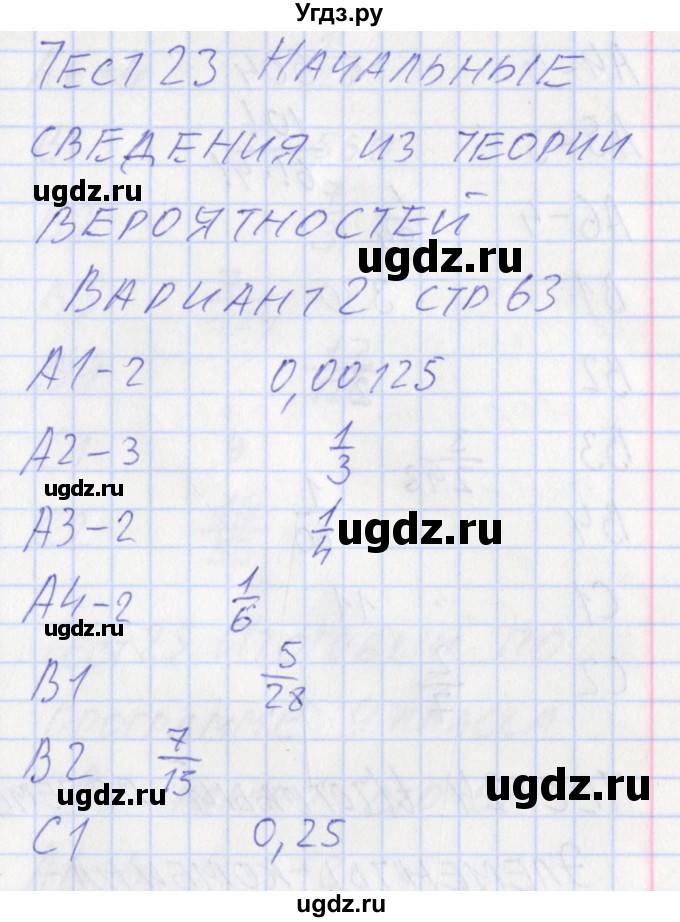 Угдз.ру
ТЕСТ 23 НАЧАЛЬНЫЕ
СВЕДЕНИЯ ИЗ ТЕОРИИ
ugdz.ru
ВЕРОЯТНОСТЕЙ
ugdz.ru
ВАРИАНТ 2 СТР 63
А1-2 0,00125
А2-3 1/3
ugdz.ru
А3-2 1/4
ugdz.ru
А4-2 1/6
ugdz.ru
В1 5/28
В2 7/15
ugdz.ru
ugdz.ru
С1 0,25
ugdz.ru